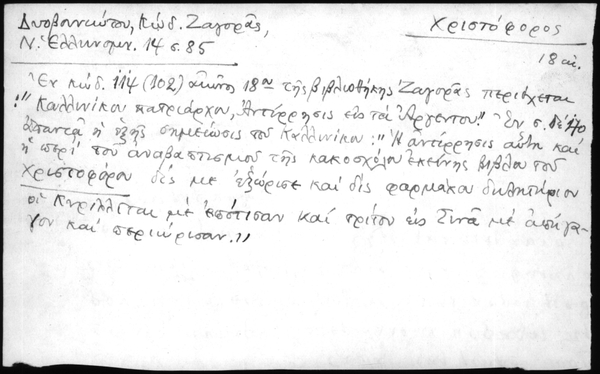 Δυοβουνιώτου, Κώδ. Ζαγορᾶς,
Χριστόφορος
Ν. Ἑλληνομν. 14 σ. 85
18 αἰ.
Ἐν κώδ. 114 (102) αἰῶνος 18ου τῆς βιβλιοθήκης Ζαγορᾶς περιέχεται
"Καλλινίκου πατριάρχου, Ἀντίρρησις εἰς τὰ Ἀργέντου". Ἐν σ. 140
ἀπαντᾷ ἡ ἑξῆς σημείωσις τοῦ Καλλινίκου: "Ἡ ἀντίρρησις αὕτη καὶ
ἡ περὶ τοῦ ἀναβαπτισμοῦ τῆς κακοσχόλου ἐκείνης βίβλου τοῦ
Χριστοφόρου δίς με ἐξώρισε καὶ δὶς φαρμάκου δηλητήριον
οἱ Κυριλλῖται μὲ ἐπότισαν καὶ τρίτον εἰς Σινᾶ μὲ ἀπήγα-
γον καὶ περιώρισαν."